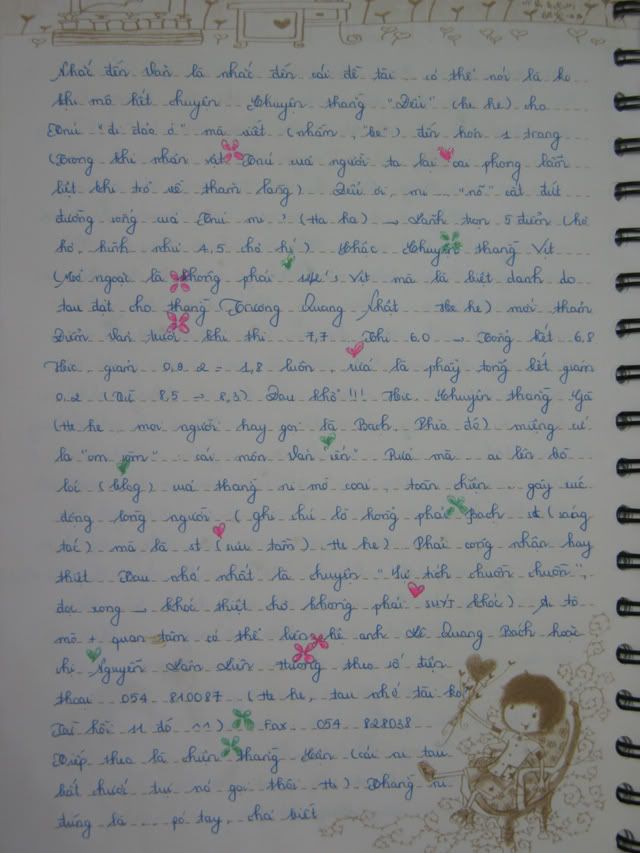 Nhắc đến Văn là nhắc đến cái đề tài ... có thể nói là ko
khi mô hết chuyện ... Chuyện thằng "Đểu" (he he) cho
Thuý "đi đảo ở" mà viết (nhầm, "be") đến hơn 1 trang
(Trong khi nhân vật Thuý của người ta lại phong
liệt khi trở về tham lang) Đểu ơi, mi ... "nỡ" cắt đứt
đường sống của Thuý ni ? (Ha ha) → Lãnh trọn 5 điểm (hơ
hơ, hình như 4,5 chơ hỉ) Khác Chuyện thằng Vịt
(Mở ngoặc là không phải Vịt mà là biệt danh do
tau đặt cho thằng Trương Quang Nhật He he) mới thảm
Điểm văn trước khi thi 7,7 Thi 6,0 → Tổng kết 6,8
Huc, giảm 0,9 . 2 = 1,8 luôn, rứa là phẩy tổng kết giảm
0,2 (Từ 8,5 → 8,3) Đau khổ !!! Huc. Chuyện thằng Gà
(He he mọi người hay gọi là Bach. Phia đó) miệng cứ
là "om sòm" : cái món Văn "iến" Rứa mà ... ai lên bờ
lốc (blog) của thằng ni mở coai, toàn chiện ... gây xúc
động lòng người (ghi chú là hong phải Bach st (sáng
tác) mà là st (sưu tầm) He he) Phải công nhận hay
thiệt Tau nhớ nhất là chuyện "Sự tích chuồn chuồn",
đọc xong → khóc thiệt chơ không phải khóc) Ai tò
mò + quan tâm có thể liên hệ anh Lê Quang Bách hoặc
chị Nguyễn Hương theo số điện
thoại 054 810087 (He he, tau nhớ tài ko
Tài hồi 11 đó ^^) Fax 054 828038
Tiếp theo là chiện thằng Hân (cái ni tau
bắt chước tụi nó gọi thôi He) Thằng ni
đúng là ... pó tay, chả biết